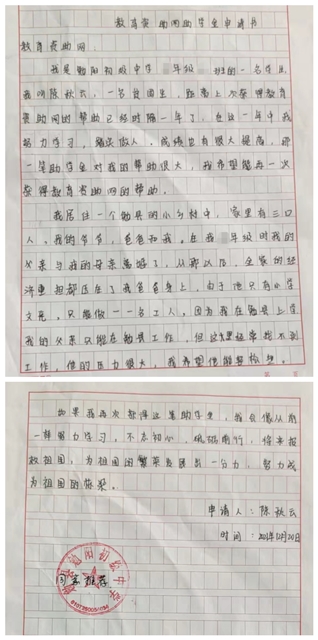 教育资助网助学金申请书
教育资助网:
我是勉阳初级中学 年级 班的一名学生
我叫陈秋云,一名贫困生,距离上次获得教育
资助网的帮助已经时隔一年了,在这一年中我
努力学习,踏实做人,成绩也有很大提高,那
一笔助学金对我的帮助很大,我希望能再一次
获得教育资助网的帮助。
我居住一个勉县的小乡村中,家里有三口
人,我的爷爷,爸爸和我。在我 年级时我的
父亲与我的母亲离婚了,从那以后,全家的经
济重担都压在了我爸爸身上,由于他只有小学
文凭,只能做一一名工人。因为我在勉县上学
我的父亲只能在勉县工作,但这里经常找不到
工作,他的压力很大,我希望他能轻松些。
如果我再次获得这笔助学金,我会像从前
一样努力学习,不忘初心,砥砺前行,将来报
效祖国,为祖国的繁荣发展出一分力,努力成
为祖国的栋梁。
申请人:陈秋云
时间:2021年12月20日
勉阳初级中学
同意推荐